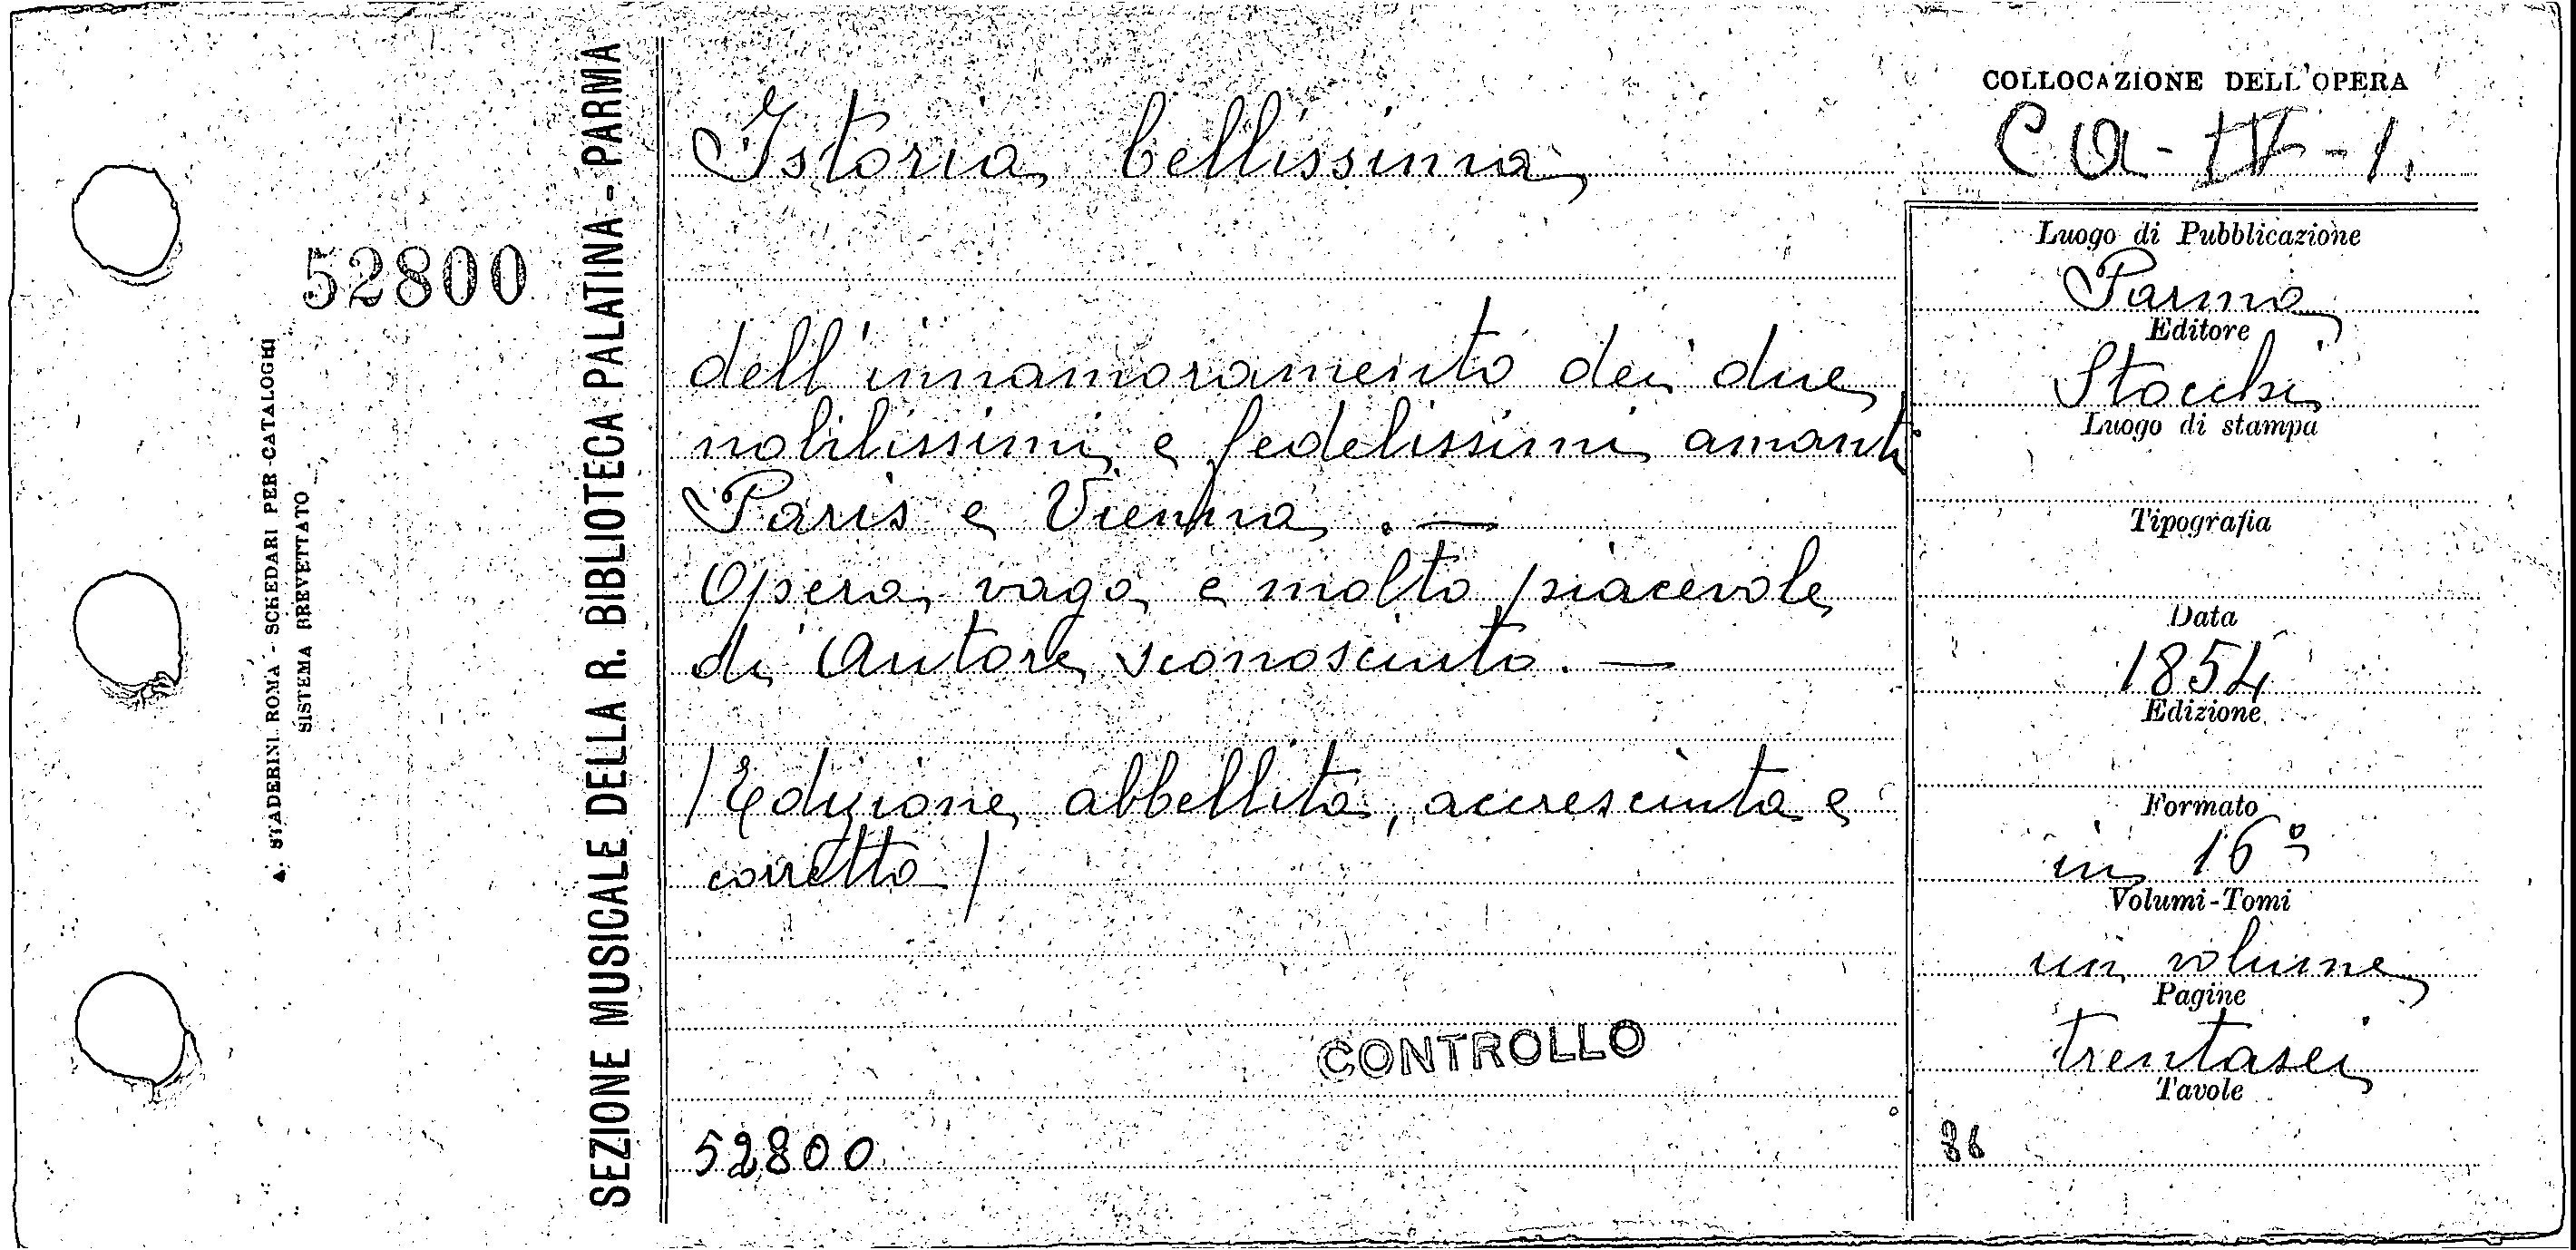 52800
STADERINI ROMA - SCHEDARI PER CATALOGHI
SISTEMA BREVETTATO
SEZIONE MUSICALE DELLA R. BIBLIOTECA PALATINA - PARMA
Istoria bellissima
dell'innamoramento dei due
nobilissimi e fedelissimi amanti
Paris e Vienna . —
Opera vaga e molto piacevole
di Autore sconosciuto. —
/ Edizione abbellita, accresciuta e
corretta /
CONTROLLO
52800
COLLOCAZIONE DELL'OPERA
CA-IV-1.
Luogo di Pubblicazione
Parma
Editore
Stocchi
Luogo di stampa
Tipografia
Data
1854
Edizione
Formato
in 16º
Volumi-Tomi
un volume
Pagine
trentasei
Tavole
36